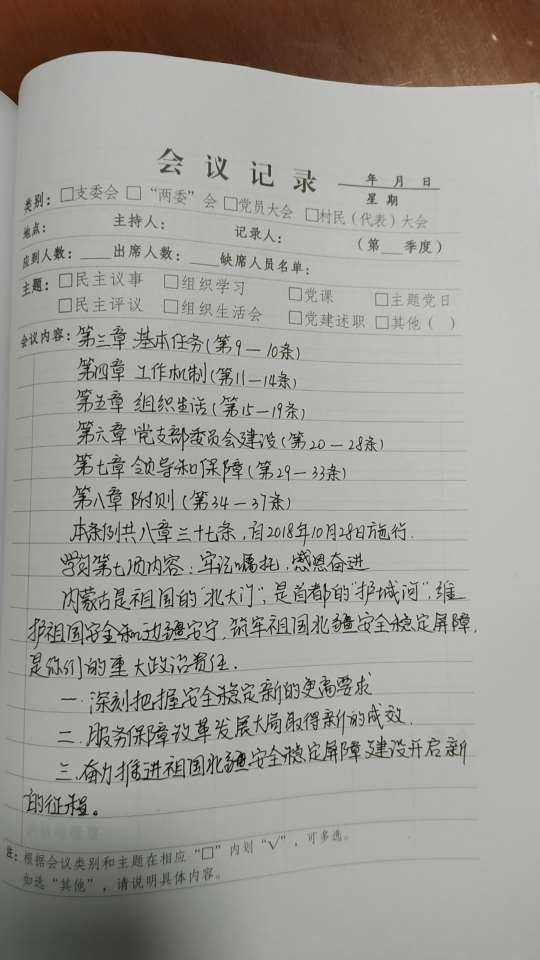 会议记录
年 月 日
星 期
类别：□支委会 □“两委”会 □党员大会 □村民（代表）大会
地点： 主持人： 记录人： （第__季度）
应到人数：____出席人数：____缺席人员名单：
主题：□民主议事 □组织学习 □党课 □主题党日
□民主评议 □组织生活会 □党建述职 □其他（ ）
会议内容：第三章 基本任务（第9—10条）
第四章 工作机制（第11—14条）
第五章 组织生活（第15—19条）
第六章 党支部委员会建设（第20—28条）
第七章 领导和保障（第29—33条）
第八章 附则（第34—37条）
本条例共八章三十七条，自2018年10月28日施行.
学习第七项内容：牢记嘱托，感恩奋进
内蒙古是祖国的“北大门”，是首都的“护城河”，维
护祖国安全和边疆安宁，筑牢祖国北疆安全稳定屏障，
是你们的重大政治责任.
一.深刻把握安全稳定新的更高要求
二.服务保障改革发展大局取得新的成效.
三.奋力推进祖国北疆安全稳定屏障建设开启新
的征程。
注：根据会议类别和主题在相应“□”内划“√”，可多选。
如选“其他”，请说明具体内容。